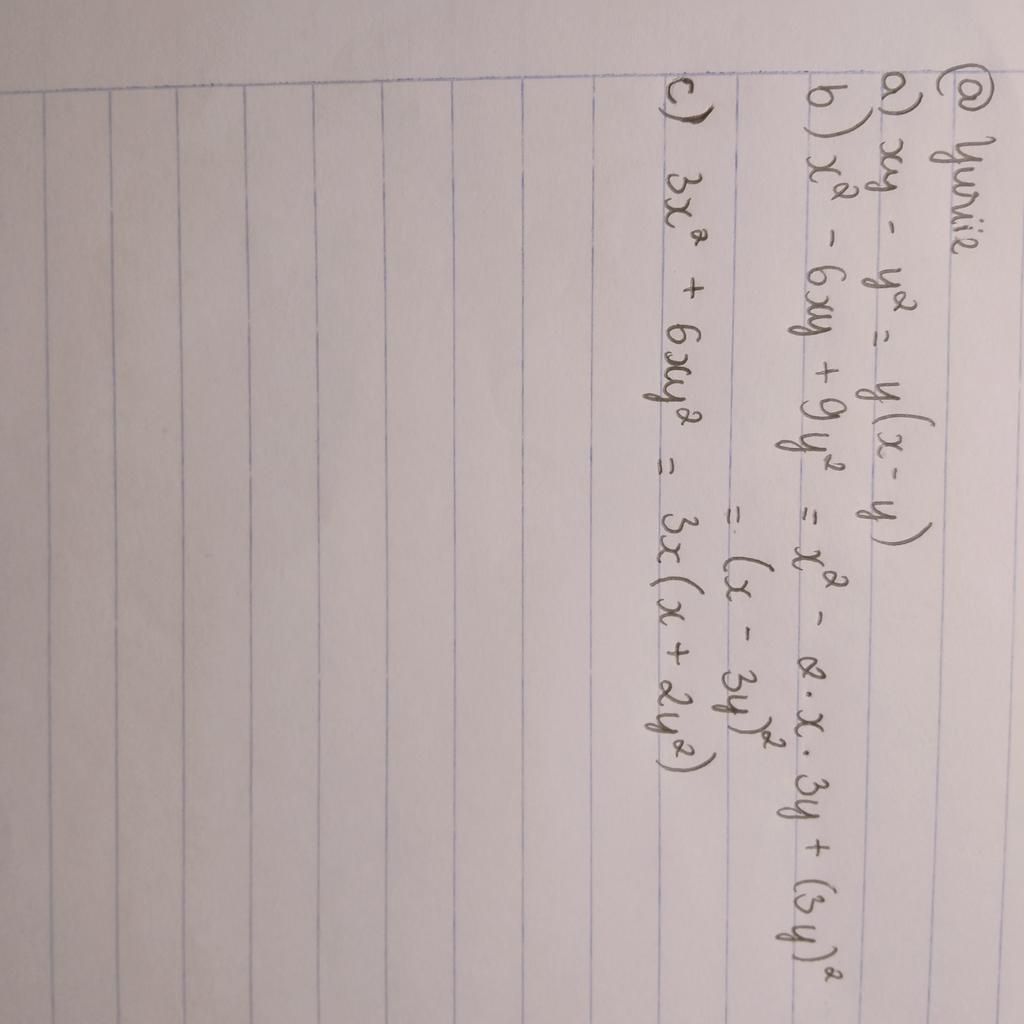 @ Yuriïe
a) xy - y² = y(x - y)
b) x² - 6xy + 9y² = x² - 2.x.3y + (3y)²
= (x - 3y)²
c) 3x² + 6xy² = 3x(x + 2y²)